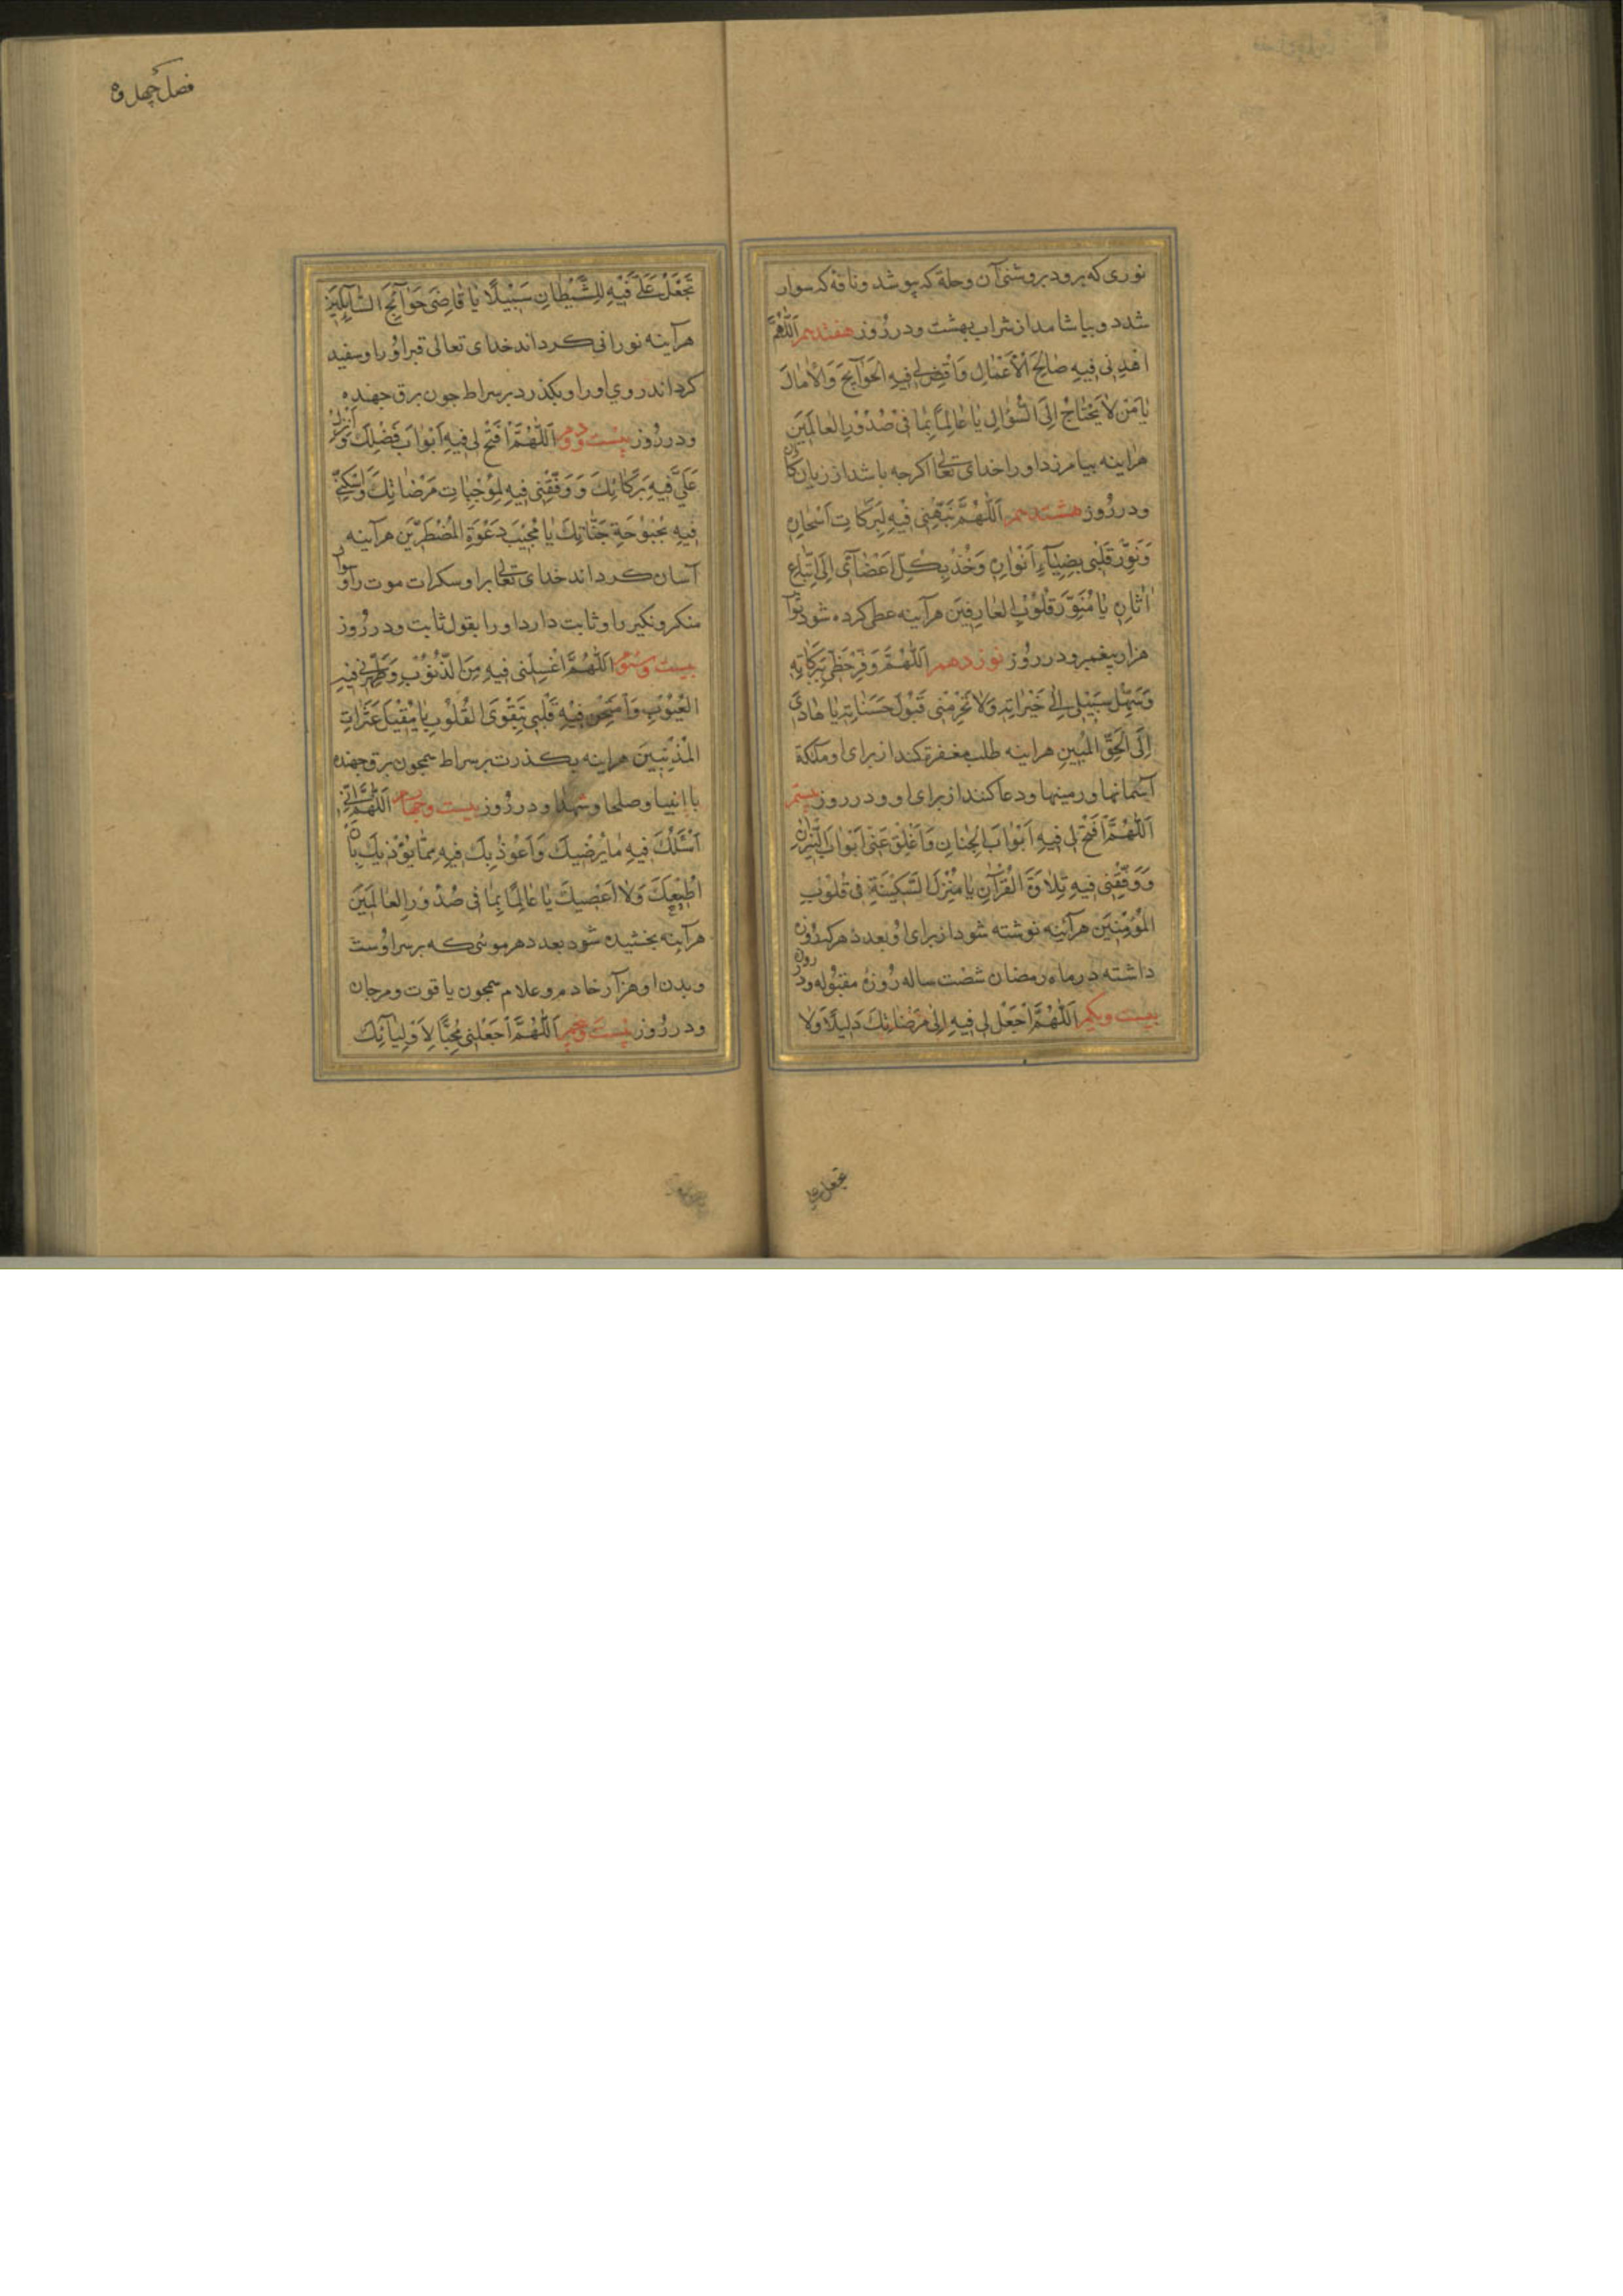 نوری که برود بروشنی آن وحلة که بپوشد وناقه که سوار
شدد وبیاشامد از شراب بهشت ودر رُوز هفتدهم اَللّٰهُمَّ
اهْدِنی فیهِ صٰالِحَ الْاَعْمٰالِ وَاقْضِ لی فیهِ الْحَوٰآیِجَ وَالْاٰمٰالَ
یٰا مَنْ لاٰ یَحْتٰاجُ اِلَی السُّؤٰالِ یٰا عٰالِمًا بِمٰا فی صُدُوْرِ الْعٰالَمیَن
هراینه بیامرزد اورا خدای تعالی اکرچه باشد از زیان کاران
ودر رُوز هشتدهم اَللّٰهُمَّ نَبِّهْنِی فیْهِ لِبَرَکٰاتِ اَسْحٰارِهِ
وَنَوِّرْ قَلْبی بِضِیٰآءِ اَنْوٰارِهِ وَخُذْ بِکُلِّ اَعْضٰآئی اِلَی اتِّبٰاعِ
اٰثٰارِهِ یٰا مُنَوِّرَ قُلُوْبِ الْعٰارِفیَن هرآینه عطی کرده شود ثوٰاب
هزار پیغمبر ودر رُوز نوزدهم اَللّٰهُمَّ وَفِّرْ حَظّی بِبَرَکٰاتِهِ
وَسَهِّلْ سَبیْلی اِلٰی خَیْرٰاتِهِ وَلاٰ تَحْرِمْنی قَبُوْلَ حَسَنٰاتِهِ یٰا هٰادی
اِلَی الْحَقِّ الْمُبینِ هراینه طلب مغفرة کند از برای او ملٰئکة
آسمانها ورمینها ودعا کنند از برای او ودر روز بیستم
اَللّٰهُمَّ افْتَحْ لی فیهِ اَبْوٰابَ الْجِنٰانِ وَاَغْلِقْ عَنّی اَبْوٰابَ النّیْرٰانِ
وَوَفِّقْنی فیهِ تِلاٰوَةَ الْقُرْآنِ یٰا مُنْزِلَ السَّکیْنَةِ فی قُلُوْبِ
الْمُؤْمِنیَن هرآینه نوشته شود از برای او بعدد هر که روزه
داشته در ماه رمضان شصت ساله رُوزه مقبُوله ودر روز
بیست ویکم اَللّٰهُمَّ اجْعَلْ لی فیهِ اِلٰی مَرْضٰاتِکَ دَلیلًا وَلاٰ
تجعل علی
فصل چهل وه
تَجْعَلْ عَلَیَّ فیْهِ لِلشَّیْطٰانِ سَبیْلًا یٰا قٰاضِیَ حَوٰآئِجَ السّٰآئِلیَن
هرآینه نورانی کرداند خدای تعالی قبر اوُرا وسفید
کرداند روی اورا وبکذرد بر سراط جون برق جهنده
ودر رُوز بیست ودوم اَللّٰهُمَّ افْتَحْ لی فیهِ اَبْوٰابَ فَضْلِکَ وَاَنْزِلْ
عَلَیَّ فیهِ بَرَکٰاتِکَ وَوَفِّقْنی فیهِ لِمُوْجِبٰاتِ مَرْضٰاتِکَ وَاَسْکِنّی
فیهِ بُحْبُوْحَةِ جَنّٰاتِکَ یٰا مُجیْبَ دَعْوَةِ الْمُضْطَرّیَن هرآینه
آسان کرداند خدای تعالی براو سکرات موت را وسؤال
منکر ونکیر را وثابت دارد اورا بقول ثابت ودر رُوز
بیست وسُوم اَللّٰهُمَّ اغْسِلْنی فیهِ مِنَ الذُّنُوْبِ وَطَهِّرْنی فیهِ
الْعُیُوْبِ وَامْتَحِنْ فیْهِ قَلْبی بِتَقْوَی الْقُلُوْبِ یٰا مُقیْلَ عَثَرٰاتِ
الْمُذْنِبیَن هراینه بکذرت بر سراط همجون برق جهنده
با انبیا وصلحا وشهدا ودر رُوز بیست وجهارم اَللّٰهُمَّ اِنّی
اَسْئَلُکَ فیهِ مٰا یُرْضیکَ وَاَعُوْذُ بِکَ فیهِ مِمّٰا یُؤْذیکَ بِاَنْ
اُطیْعَکَ وَلاٰ اَعْصیکَ یٰا عٰالِمًا بِمٰا فی صُدُوْرِ الْعٰالَمیَن
هرآینه بخشیده شود بعدد هر موئی که بر سر اوست
وبدن او هزآر خادم وعلام همجون یاقوت ومرجان
ودر رُوز بیست وپنجم اَللّٰهُمَّ اجْعَلْنی مُحِبًّا لِاَوْلِیٰآئِکَ